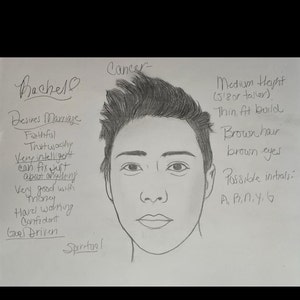 Cancer
Rachel
Desires Marriage
Faithful
Trustworthy
Very intelligent
can fix just
about anything
Very good with
money
Hard working
Confident
Goal Driven
Spiritual
Medium Height
(5'8 or taller)
Thin fit build
Brown hair
brown eyes
Possible initials:
A, B, N, Y, G